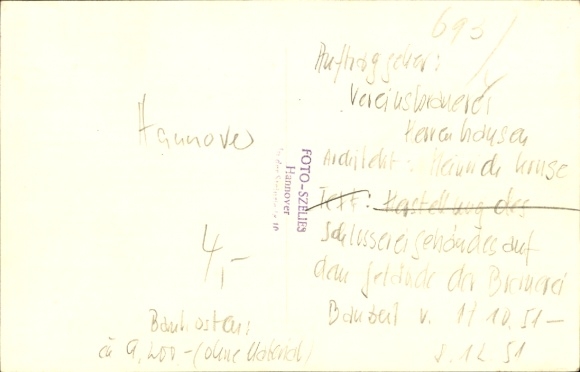 693/
Hannover
4,-
Baukosten:
ca 9,200.- (ohne Material)
FOTO-SZELIES
Hannover
Auftraggeber:
Vereinsbrauerei
Herrenhausen
Architekt: Heinrich Kruse
Text: Herstellung des
Schlossereigebäudes auf
dem Gelände der Brauerei
Bauzeit v. 1/10.51 –
8.12.51